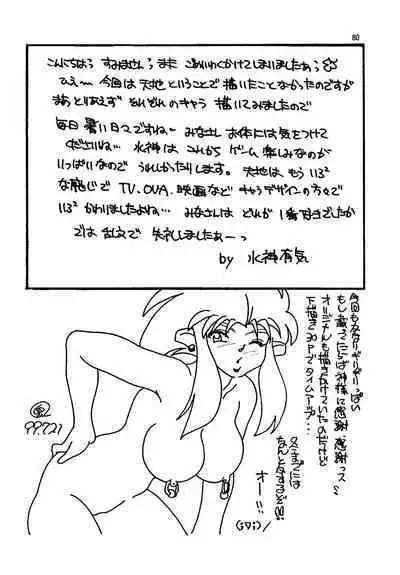 80
こんにちはっ すみません、また ごめいわくかけてしまいましたぁっ
ひえ〜 今回は 天地 ということで 描いたことなかったのですが
まあとりあえず それぞれのキャラ 描いてみましたので
毎日 暑い日々ですね〜 みなさん お体には気をつけて
くださいね… 水神は これから ゲーム 楽しみなのが
いっぱいなので うれしかったりします。 天地は、もう
な感じで TV、OVA、映画など キャラデザインの方々で
かわりましたよね… みなさんは どれが 1番好きでしたか
では 乱文で 失礼しましたぁーっ
by 水神有気
今回も
もし載ってたらば神様に感謝 感謝っス
オリジナルも描きかけていたのだけど
下描き30Pでタイムアップ…
99.7.21
オー